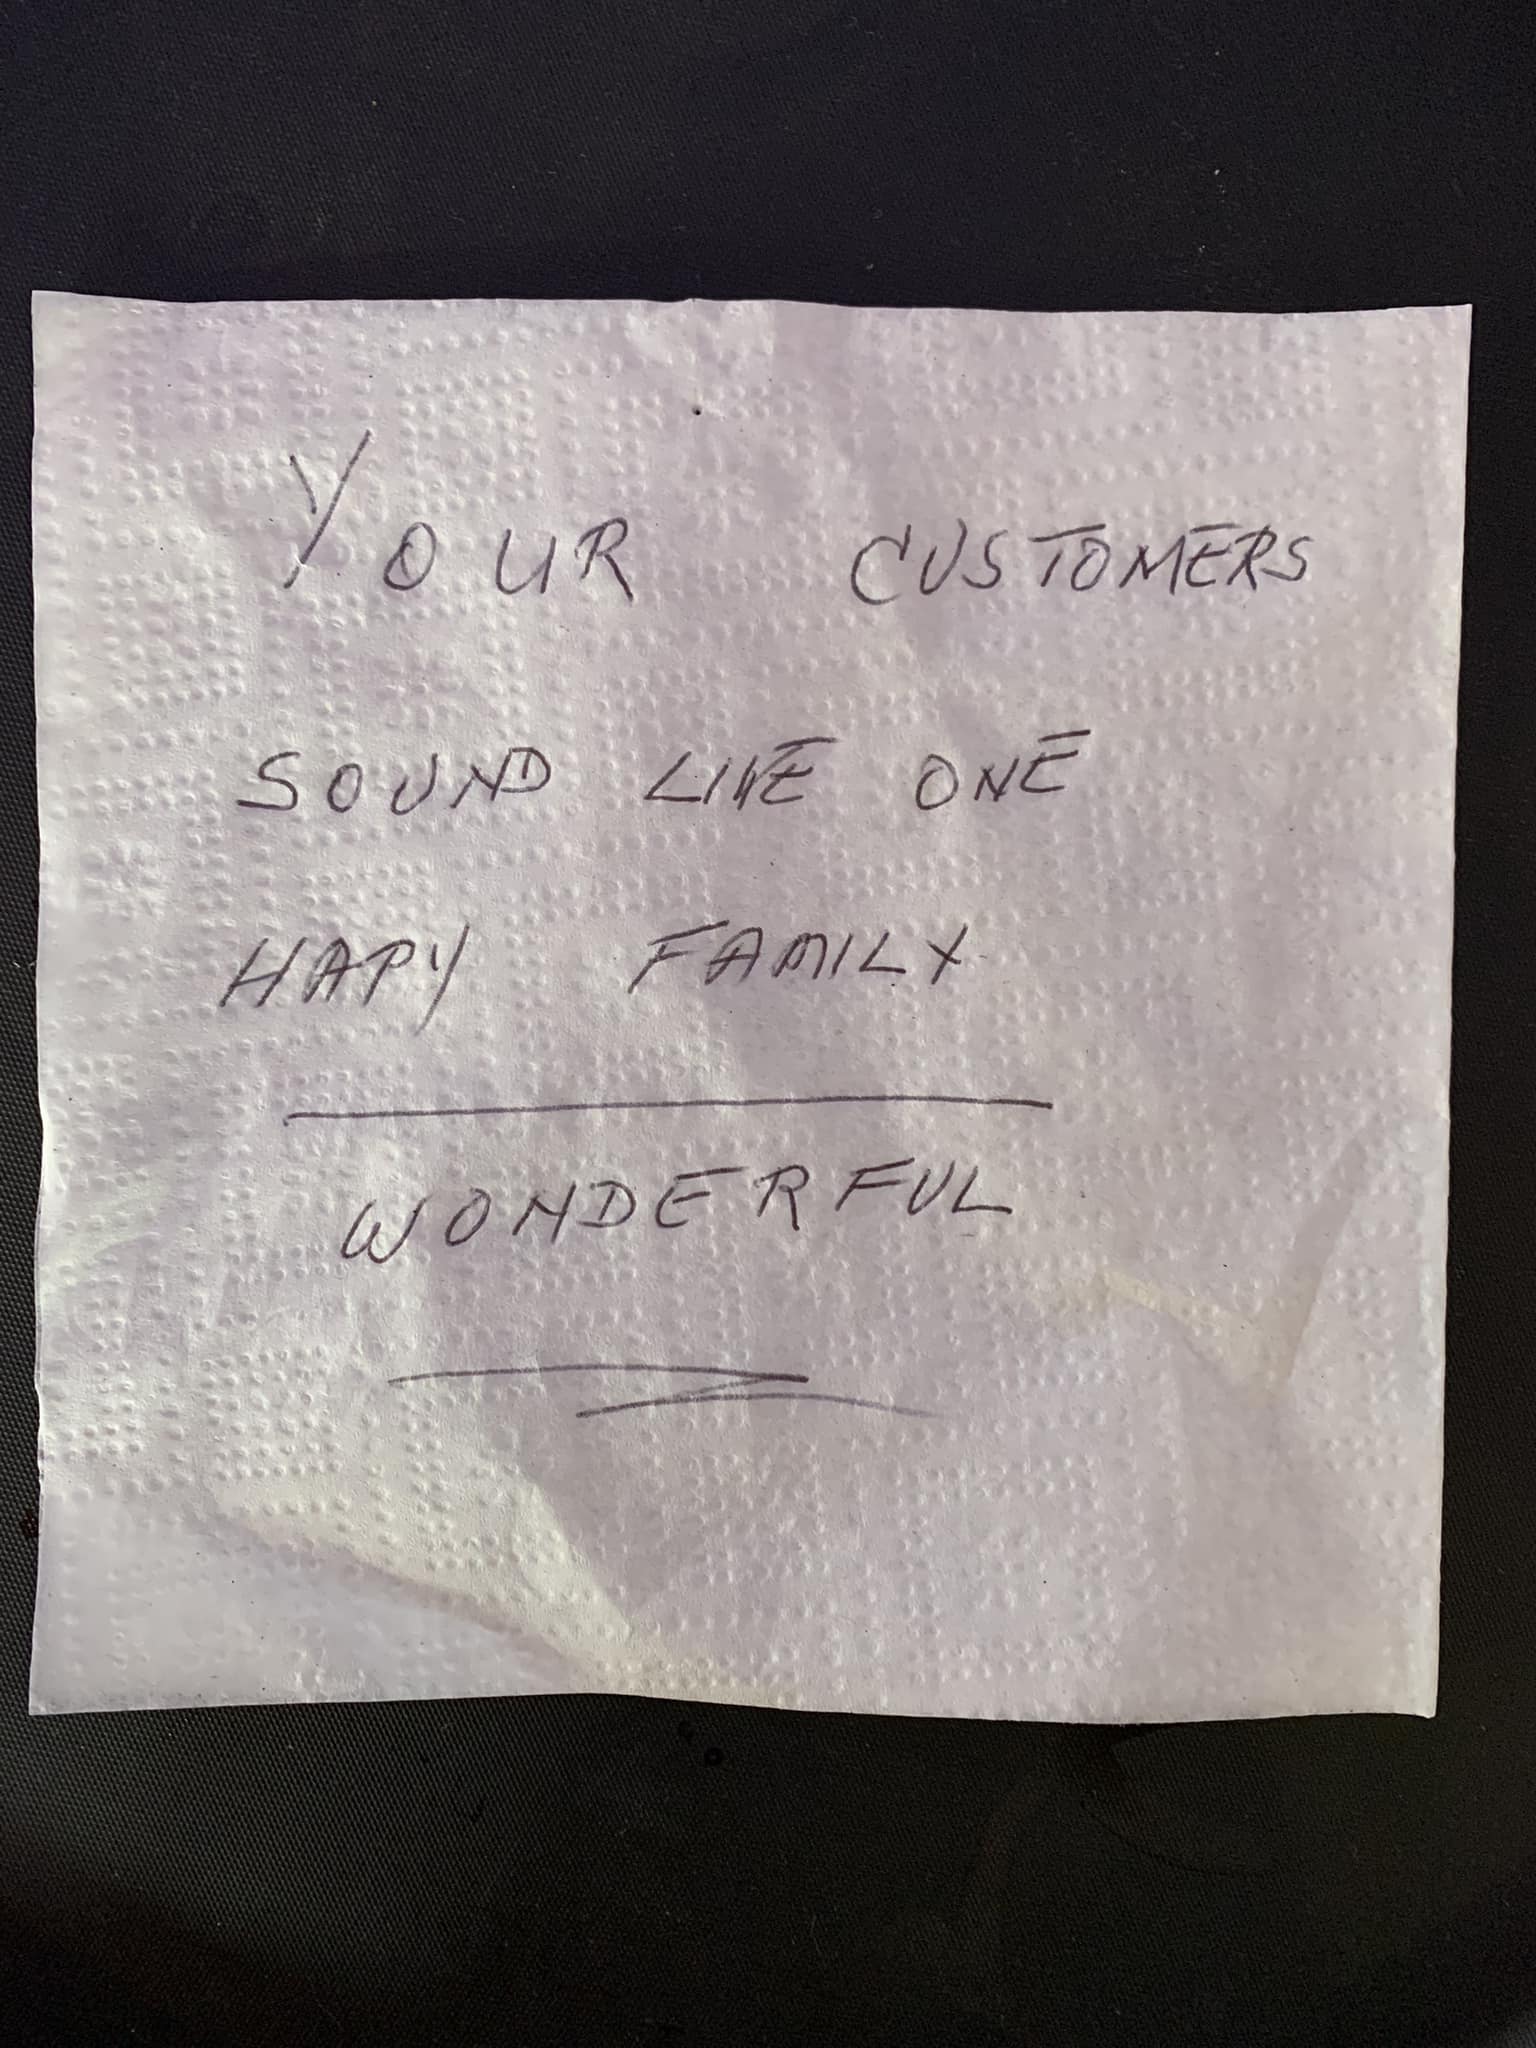 YOUR CUSTOMERS
SOUND LIKE ONE
HAPY FAMILY
WONDERFUL